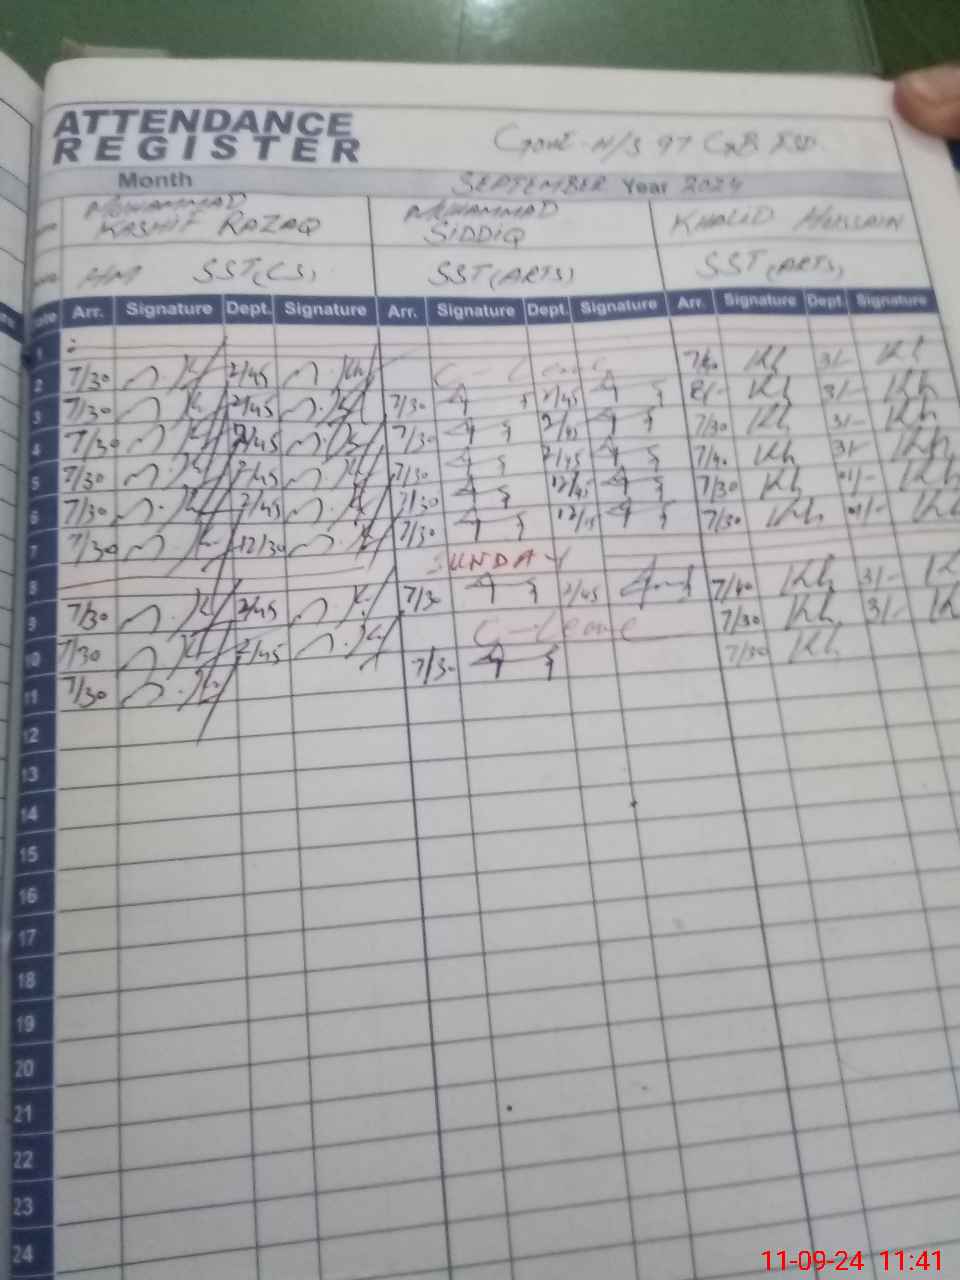 ATTENDANCE
REGISTER
Govt H/S 97 GB FSD.
Month SEPTEMBER Year 2024
MUHAMMAD KASHIF RAZAQ MUHAMMAD SIDDIQ KHALID HUSSAIN
HM SST(CS) SST(ARTS) SST(ARTS)
Arr. Signature Dept. Signature Arr. Signature Dept. Signature Arr. Signature Dept. Signature
1
2 7/30 2/45 C-Leave 7/40 Kh 3/- Kh
3 7/30 2/45 7/30 2/45 8/- Kh 3/- Kh
4 7/30 2/45 7/30 2/45 7/30 Kh 3/- Kh
5 7/30 2/45 7/30 2/45 7/40 Kh 3/- Kh
6 7/30 2/45 7/30 12/45 7/30 Kh Kh
7 7/30 12/30 7/30 7/30 Kh Kh
8 SUNDAY
9 7/30 2/45 7/30 2/45 7/40 Kh 3/- Kh
10 7/30 2/45 C-Leave 7/30 Kh 3/- Kh
11 7/30 7/30 7/30 Kh
12
13
14
15
16
17
18
19
20
21
22
23
24
11-09-24 11:41